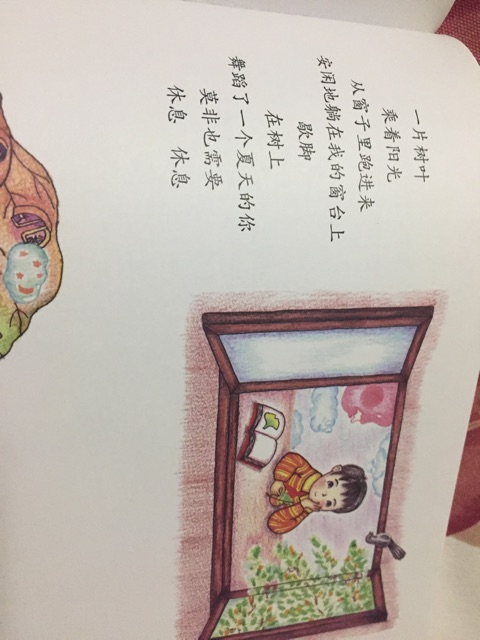 一片树叶
乘着阳光
从窗子里跑进来
安闲地躺在我的窗台上
歇脚
在树上
舞蹈了一个夏天的你
莫非也需要
休息 休息